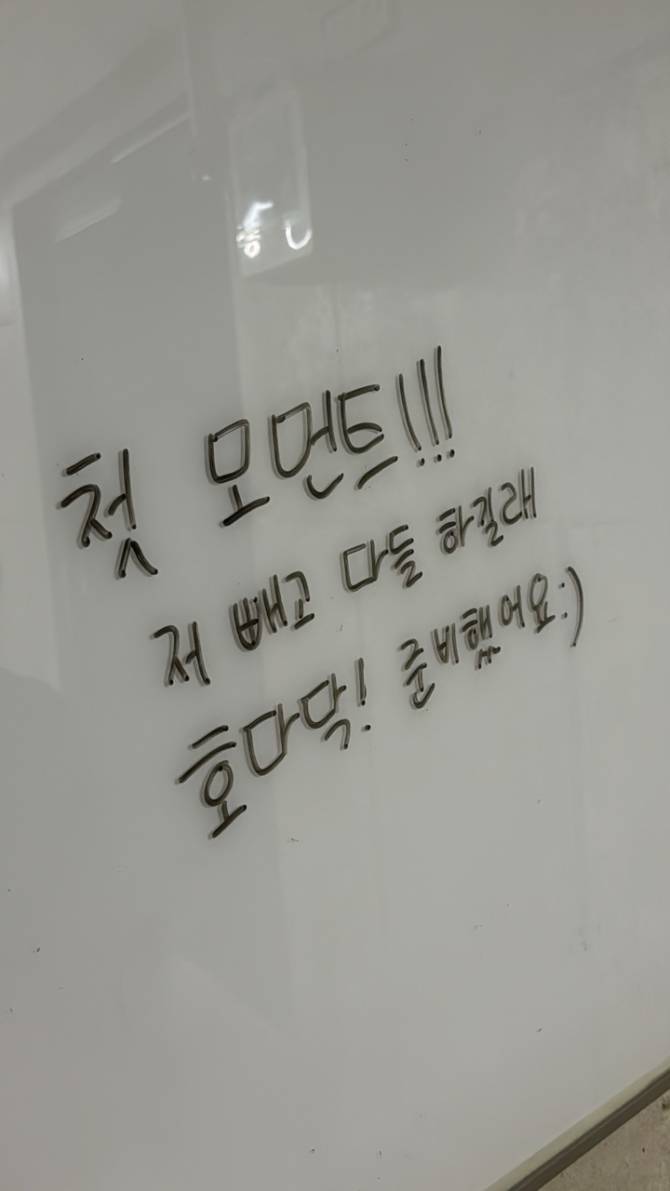 첫 모먼트!!!
저 빼고 다들 하길래
호다닥! 준비했어요:)